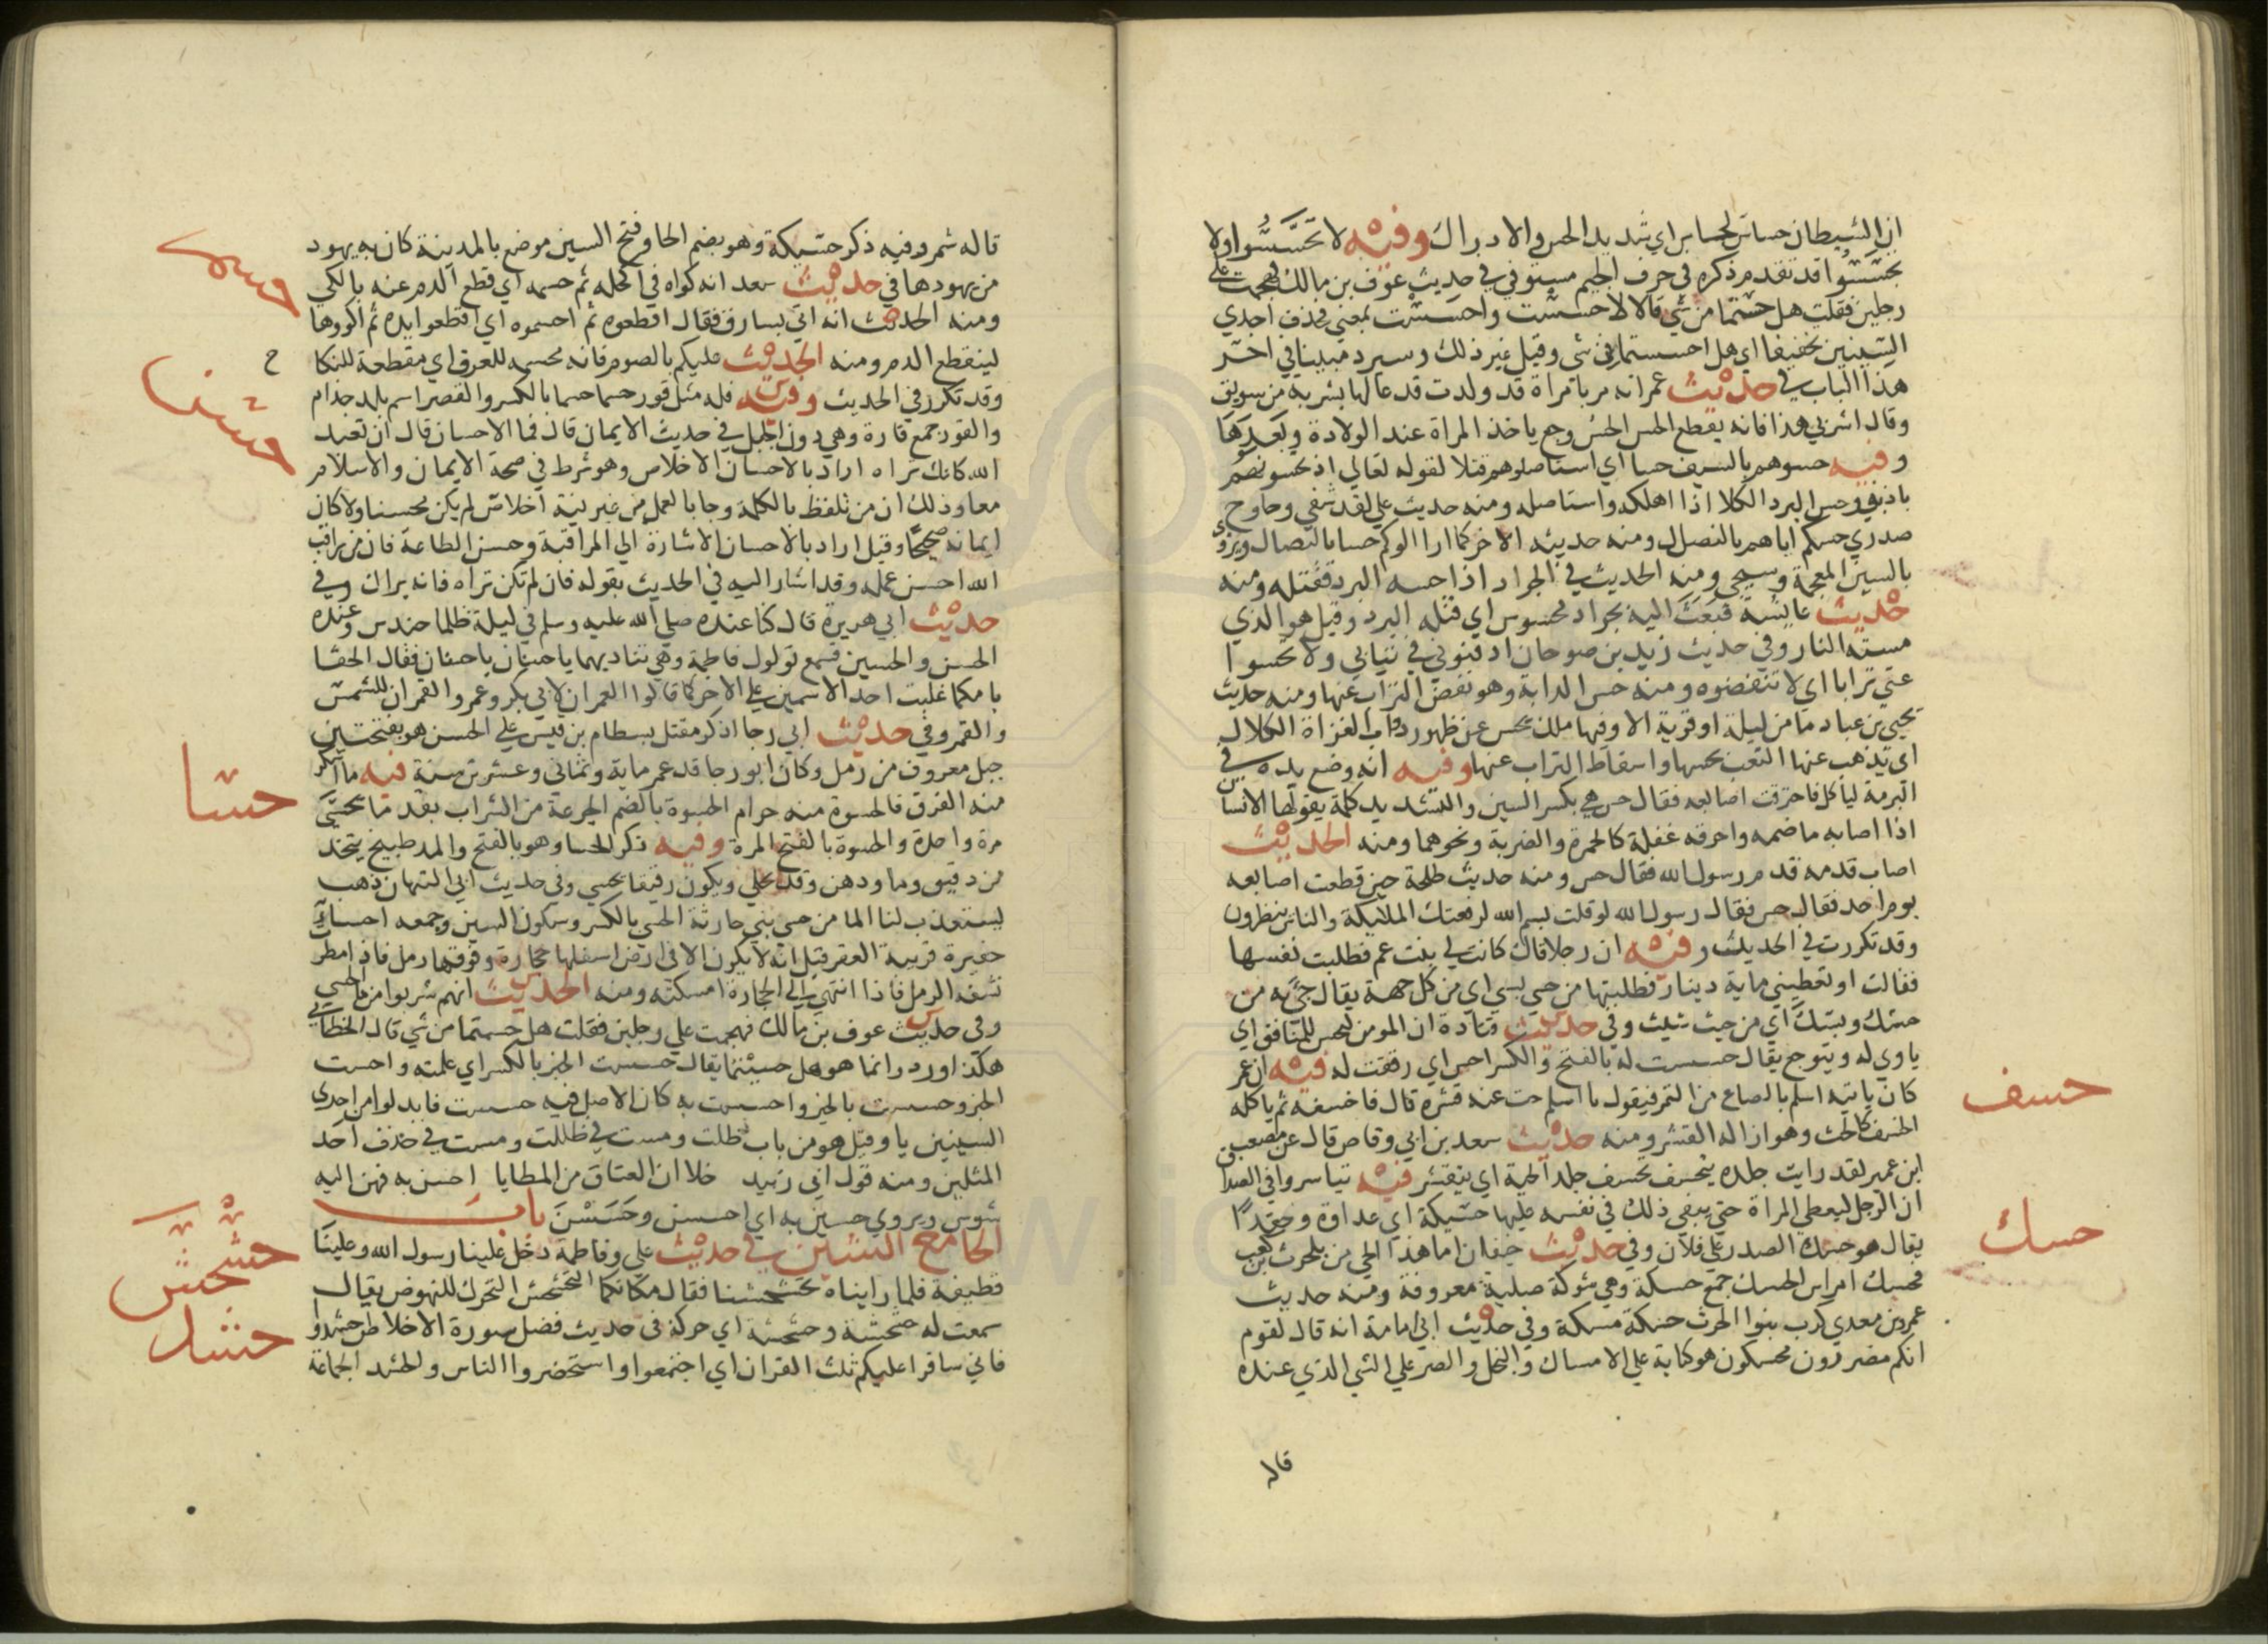 ان الشيطان حساس لحساس اي شديد الحس والادراك وفيه لا تحسسوا ولا
تجسسوا قد تقدم ذكره في حرف الجيم مستوفي في حديث عوف بن مالك فهجمت علي
رجلين فقلت هل حستما من شي قالا لا حسست واحسست بمعني فحذف احدي
السينين تخفيفا اي هل احسستما من شي وقيل غير ذلك وسيرد مبينا في اخر
هذا الباب في حديث عمر انه مر بامراة قد ولدت قد عالها بشربة من سويق
وقال اشربي هذا فانه يقطع الحس الحس وجع ياخذ المراة عند الولادة وبعدها
وفيه حسوهم بالسيف حسا اي استاصلوهم قتلا لقوله تعالي اذ تحسونهم
باذنه وحس البرد الكلا اذا اهلكه واستاصله ومنه حديث علي لقد شفي وحاوح
صدري حسكم اياهم بالنصل ومنه حديثه الاخر كما ازالوكم حسا بالنصال ويروي
بالشين المعجمة وسيجي ومنه الحديث في الجراد اذا حسه البرد فقتله ومنه
حديث عايشة فبعث اليه بجراد محسوس اي قتله البرد وقيل هو الذي
مسته النار وفي حديث زيد بن صوحان ادفنوني في ثيابي ولا تحسوا
عني ترابا اي لا تنفضوه ومنه حس الدابة وهو نفض التراب عنها ومنه حديث
يحيي بن عباد ما من ليلة او قرية الا وفيها ملك يحس عن ظهور دواب الغزاة الكلال
اي يذهب عنها التعب بحسها واسقاط التراب عنها وفيه انه وضع يده في
البرمة لياكل فاحترقت اصابعه فقال حس هي بكسر السين والتشديد كلمة يقولها الانسان
اذا اصابه ما مضه واحرقه غفلة كالجمرة والضربة ونحوهما ومنه الحديث
اصاب قدمه قدم رسول الله فقال حس ومنه حديث طلحة حين قطعت اصابعه
يوم احد فقال حس فقال رسول الله لو قلت بسم الله لرفعتك الملايكة والناس ينظرون
وقد تكررت في الحديث وفيه ان رجلا قال كانت لي بنت عم فطلبت نفسها
فقالت او تعطيني ماية دينار فطلبتها من حسي بسي اي من كل جهة يقال جي به من
حسك وبسك اي من حيث شيت وفي حديث قتادة ان المومن ليحس للمنافق اي
ياوي له ويتوجع يقال حسست له بالفتح والكسر احس اي رققت له فيه ان عمر
كان ياتيه اسلم بالصاع من التمر فيقول يا اسلم حت عنه قشره قال فاحسفه ثم ياكله
الحسف كالحت وهو ازالة القشر ومنه حديث سعد بن ابي وقاص قال عن مصعب
ابن عمير لقد رايت جلده يتحسف تحسف جلد الحية اي يتقشر فيه تياسروا في الصداق
ان الرجل ليعطي المراة حتي يبقي ذلك في نفسه عليها حسيكة اي عداوة وحقدا
يقال هو حسك الصدر علي فلان وفي حديث خيفان اما هذا الحي من بلحرث بن كعب
فحسك امراس الحسك جمع حسكة وهي شوكة صلبة معروفة ومنه حديث
عمرو بن معدي كرب بنوا الحرث حسكة مسكة وفي حديث ابي امامة انه قال لقوم
انكم مصررون محسكون هو كناية علي الامساك والبخل والصر علي الشي الذي عنده
قاله
حسف
حسك
قاله شمر وفيه ذكر حسيكة وهو بضم الحا وفتح السين موضع بالمدينة كان به يهود
من يهودها في حديث سعد انه كواه في اكحله ثم حسمه اي قطع الدم عنه بالكي
ومنه الحديث انه اتي بسارق فقال اقطعوه ثم احسموه اي اقطعوا يده ثم اكووها
لينقطع الدم ومنه الحديث عليكم بالصوم فانه محسمة للعرق اي مقطعة للنكا
وقد تكرر في الحديث وفيه فله مثل قور حسما حسما بالكسر والقصر اسم بلد جذام
والقور جمع قارة وهي دون الجبل في حديث الايمان قال فما الاحسان قال ان تعبد
الله كانك تراه اراد بالاحسان الاخلاص وهو شرط في صحة الايمان والاسلام
معا وذلك ان من تلفظ بالكلمة وجا بالعمل من غير نية اخلاص لم يكن محسنا ولا كان
ايمانه صحيحا وقيل اراد بالاحسان الاشارة الي المراقبة وحسن الطاعة فان من راقب
الله احسن عمله وقد اشار اليه في الحديث بقوله فان لم تكن تراه فانه يراك وفي
حديث ابي هريرة قال كنا عنده صلي الله عليه وسلم في ليلة ظلما حندس وعنده
الحسن والحسين فسمع تولول فاطمة وهي تناديهما يا حسنان يا حسنان فقال الحقا
بامكما غلبت احد الاسمين علي الاخر كما قالوا العمران لابي بكر وعمر والقمران للشمس
والقمر وفي حديث ابي رجا اذكر مقتل بسطام بن قيس علي الحسن هو بفتحتين
جبل معروف من رمل وكان ابو رجا قد عمر ماية وثماني وعشرين سنة فيه ما اسكر
منه الفرق فالحسوة منه حرام الحسوة بالضم الجرعة من الشراب بقدر ما تحسي
مرة واحدة والحسوة بالفتح المرة وفيه ذكر الحسا وهو بالفتح والمد طبيخ يتخذ
من دقيق وما ودهن وقد يحلي ويكون رقيقا يحسي وفي حديث ابي التيهان ذهب
يستعذب لنا الما من حسي بني حارثة الحسي بالكسر وسكون السين وجمعه احسا
حفيرة قريبة القعر قيل انه لا يكون الا في ارض اسفلها حجارة وفوقها رمل فاذا امطر
نشفه الرمل فاذا انتهي الي الحجارة امسكته ومنه الحديث انهم شربوا من ما الحسي
وفي حديث عوف بن مالك فهجمت علي رجلين فقلت هل حستما من شي قال الخطابي
هكذا ورد وانما هو هل حسيتما يقال حسست الخبر بالكسر اي علمته واحست
الخبر وحسست بالخبر واحسست به كان الاصل فيه حسست فابدلوا من احدي
السينين يا وقيل هو من باب ظلت ومست في ظللت ومسست في حذف احد
المثلين ومنه قول ابي زبيد خلا ان العتاق من المطايا احسن به فهن اليه
شوس ويروي حسين به اي احسسن وحسسن باب
الحا مع الشين في حديث علي وفاطمة دخل علينا رسول الله وعلينا
قطيفة فلما رايناه تحشحشنا فقال مكانكما التحشحش التحرك للنهوض يقال
سمعت له حشحشة وخشخشة اي حركة في حديث فضل سورة الاخلاص احشدوا
فاني ساقرا عليكم ثلث القران اي اجتمعوا واستحضروا الناس والحشد الجماعة
حسم
ح
حسن
حسا
حشحش
حشد